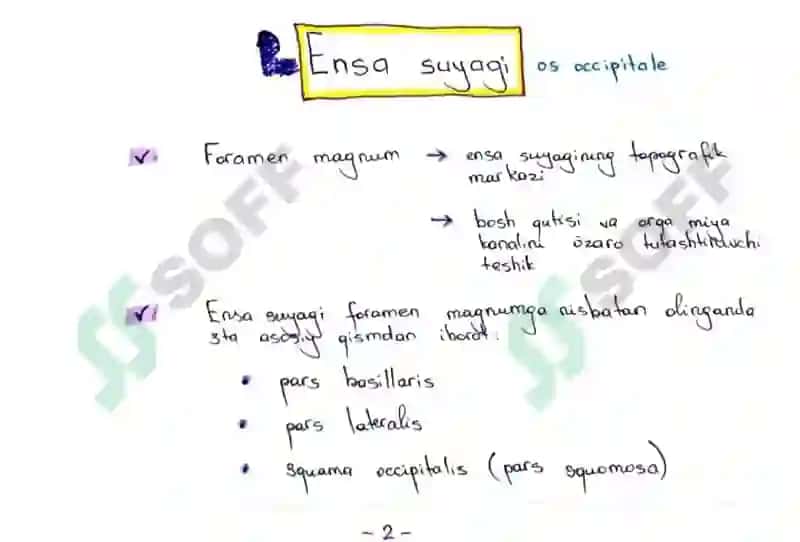 2. Ensa suyagi os occipitale
✓. Foramen magnum → ensa suyagining topografik
markazi
→ bosh qutisi va orqa miya
kanalini o'zaro tutashtiruvchi
teshik
✓. Ensa suyagi foramen magnumga nisbatan olinganda
3ta asosiy qismdan iborat:
• pars basillaris
• pars lateralis
• squama occipitalis (pars squomosa)
- 2 -
SOFF
SOFF